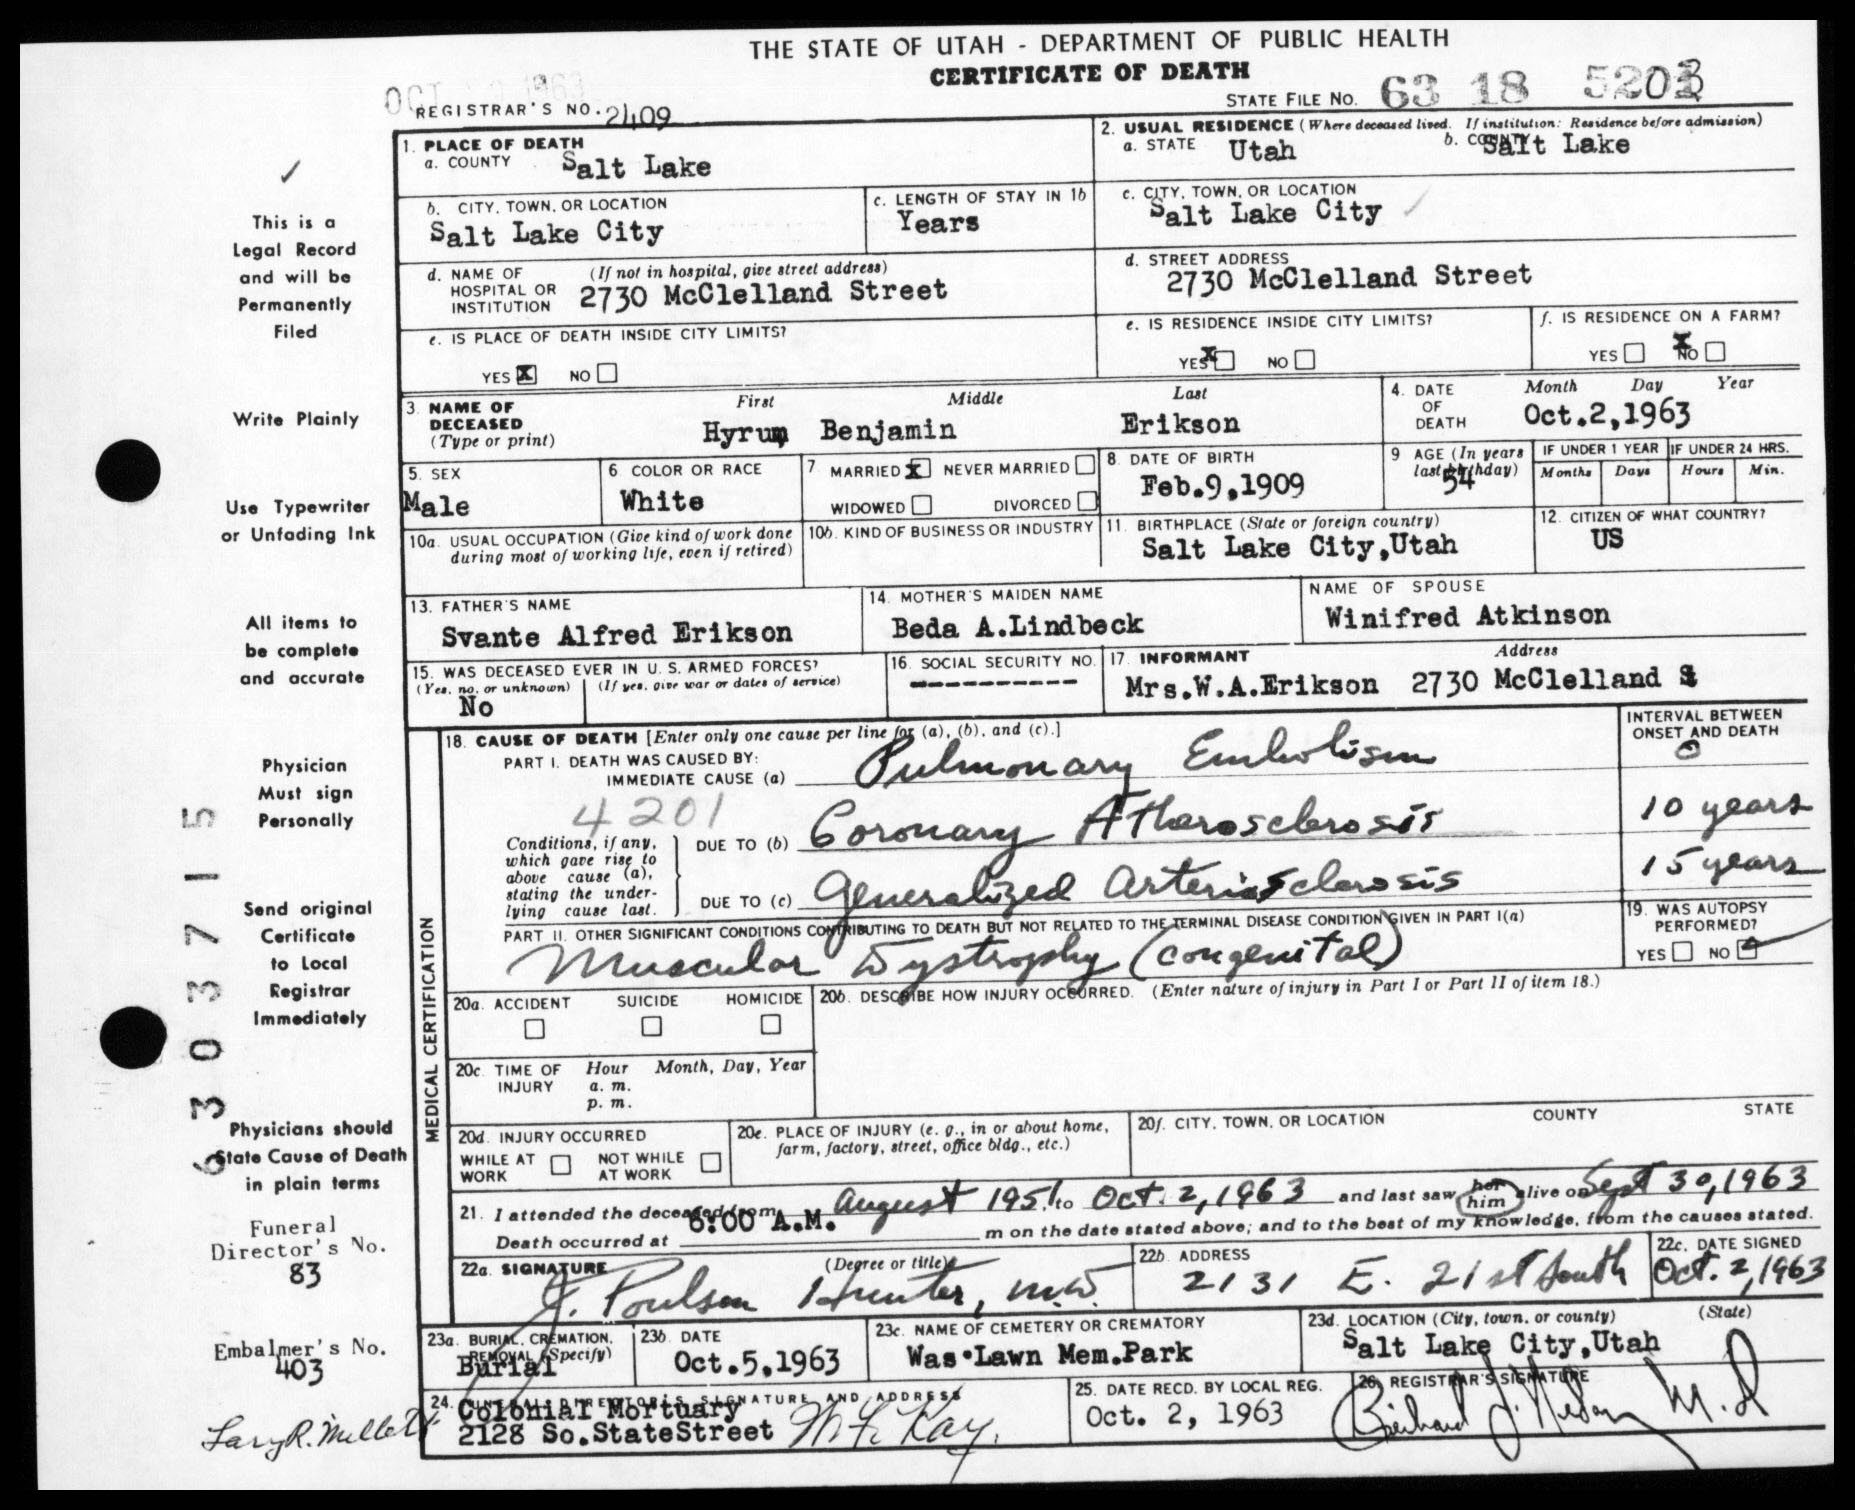 THE STATE OF UTAH - DEPARTMENT OF PUBLIC HEALTH
CERTIFICATE OF DEATH
OCT 1963
REGISTRAR'S NO. 2409
STATE FILE NO. 63 18 5203
1. PLACE OF DEATH
a. COUNTY Salt Lake
2. USUAL RESIDENCE (Where deceased lived. If institution: Residence before admission)
a. STATE Utah b. COUNTY Salt Lake
b. CITY, TOWN, OR LOCATION
Salt Lake City
c. LENGTH OF STAY IN 1b
Years
c. CITY, TOWN, OR LOCATION
Salt Lake City
d. NAME OF HOSPITAL OR INSTITUTION (If not in hospital, give street address)
2730 McClelland Street
d. STREET ADDRESS
2730 McClelland Street
e. IS PLACE OF DEATH INSIDE CITY LIMITS?
YES X NO
e. IS RESIDENCE INSIDE CITY LIMITS?
YES X NO
f. IS RESIDENCE ON A FARM?
YES X NO
3. NAME OF DECEASED (Type or print)
First Middle Last
Hyrum Benjamin Erikson
4. DATE OF DEATH
Month Day Year
Oct.2,1963
5. SEX
Male
6. COLOR OR RACE
White
7. MARRIED X NEVER MARRIED
WIDOWED DIVORCED
8. DATE OF BIRTH
Feb.9,1909
9 AGE (In years last birthday)
54
IF UNDER 1 YEAR
Months Days
IF UNDER 24 HRS.
Hours Min.
10a. USUAL OCCUPATION (Give kind of work done during most of working life, even if retired)
10b. KIND OF BUSINESS OR INDUSTRY
11. BIRTHPLACE (State or foreign country)
Salt Lake City,Utah
12. CITIZEN OF WHAT COUNTRY?
US
13. FATHER'S NAME
Svante Alfred Erikson
14. MOTHER'S MAIDEN NAME
Beda A.Lindbeck
NAME OF SPOUSE
Winifred Atkinson
15. WAS DECEASED EVER IN U. S. ARMED FORCES?
(Yes, no, or unknown) (If yes, give war or dates of service)
No
16. SOCIAL SECURITY NO.
----------
17. INFORMANT Address
Mrs.W.A.Erikson 2730 McClelland St
MEDICAL CERTIFICATION
18. CAUSE OF DEATH [Enter only one cause per line for (a), (b), and (c).]
INTERVAL BETWEEN ONSET AND DEATH
PART I. DEATH WAS CAUSED BY:
IMMEDIATE CAUSE (a) Pulmonary Embolism 0
4201
Conditions, if any, which gave rise to above cause (a), stating the underlying cause last.
DUE TO (b) Coronary Atherosclerosis 10 years
DUE TO (c) Generalized Arteriosclerosis 15 years
PART II. OTHER SIGNIFICANT CONDITIONS CONTRIBUTING TO DEATH BUT NOT RELATED TO THE TERMINAL DISEASE CONDITION GIVEN IN PART I(a)
Muscular Dystrophy (congenital)
19. WAS AUTOPSY PERFORMED?
YES NO
20a. ACCIDENT SUICIDE HOMICIDE
20b. DESCRIBE HOW INJURY OCCURRED. (Enter nature of injury in Part I or Part II of item 18.)
20c. TIME OF INJURY Hour Month, Day, Year
a. m.
p. m.
20d. INJURY OCCURRED
WHILE AT WORK NOT WHILE AT WORK
20e. PLACE OF INJURY (e. g., in or about home, farm, factory, street, office bldg., etc.)
20f. CITY, TOWN, OR LOCATION COUNTY STATE
21. I attended the deceased from August 1951 to Oct. 2, 1963 and last saw her him alive on Sept 30, 1963
Death occurred at 6:00 A.M. m on the date stated above; and to the best of my knowledge, from the causes stated.
22a. SIGNATURE (Degree or title)
J. Poulson Hunter, M.D.
22b. ADDRESS
2131 E. 21st South
22c. DATE SIGNED
Oct. 2, 1963
23a. BURIAL, CREMATION, REMOVAL (Specify)
Burial
23b. DATE
Oct.5,1963
23c. NAME OF CEMETERY OR CREMATORY
Was.Lawn Mem.Park
23d. LOCATION (City, town, or county) (State)
Salt Lake City,Utah
24. FUNERAL DIRECTOR'S SIGNATURE AND ADDRESS
Colonial Mortuary
2128 So.StateStreet
25. DATE RECD. BY LOCAL REG.
Oct. 2, 1963
26. REGISTRAR'S SIGNATURE
M.D.
This is a
Legal Record
and will be
Permanently
Filed
Write Plainly
Use Typewriter
or Unfading Ink
All items to
be complete
and accurate
Physician
Must sign
Personally
Send original
Certificate
to Local
Registrar
Immediately
Physicians should
State Cause of Death
in plain terms
Funeral
Director's No.
83
Embalmer's No.
403
63037 15